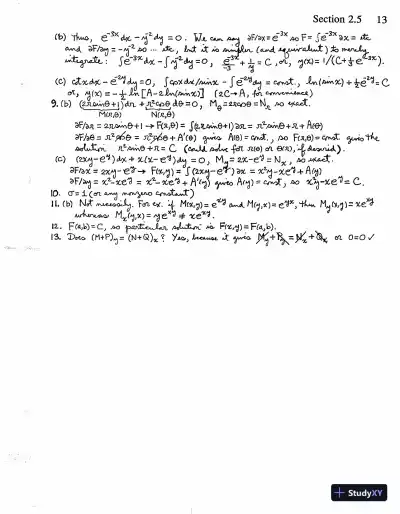 Section 2.5 13
(b) Thus, e^{-3x}dx - y^{-2}dy = 0. We can say ∂F/∂x = e^{-3x} so F = ∫e^{-3x}∂x = etc
and ∂F/∂y = -y^{-2} so ... etc, but it is simpler (and equivalent) to merely
integrate: ∫e^{-3x}dx - ∫y^{-2}dy = 0, e^{-3x}/-3 + 1/y = C, or, y(x) = 1/(C+⅓e^{-3x}).
(c) cotxdx - e^{-2y}dy = 0, ∫cosxdx/sinx - ∫e^{-2y}dy = const., ln(sinx) + ½e^{-2y} = C
or, y(x) = -½ ln[A-2ln(sinx)] (2C→A, for convenience)
9. (b) (2r sinθ+1)dr + r²cosθ dθ = 0, M_θ = 2r cosθ = N_r so exact.
M(r,θ) N(r,θ)
∂F/∂r = 2r sinθ+1 → F(r,θ) = ∫(2r sinθ+1)∂r = r²sinθ+r+A(θ)
∂F/∂θ = r²cosθ = r²cosθ + A'(θ) gives A(θ) = const., so F(r,θ) = const gives the
solution r²sinθ+r = C (could solve for r(θ) or θ(r), if desired).
(c) (2xy-e^y)dx + x(x-e^y)dy = 0, M_y = 2x-e^y = N_x, so exact.
∂F/∂x = 2xy-e^y → F(x,y) = ∫(2xy-e^y)∂x = x²y-xe^y+A(y)
∂F/∂y = x²-xe^y = x²-xe^y+A'(y) gives A(y) = const, so x²y-xe^y = C.
10. σ = 1 (or any nonzero constant)
11. (b) Not necessarily. For ex. if M(x,y) = e^{xy} and M(y,x) = e^{yx}, then M_y(y,x) = xe^{xy}
whereas M_x(x,y) = ye^{xy} ≠ xe^{xy}.
12. F(a,b) = C, so particular solution is F(x,y) = F(a,b).
13. Does (M+P)_y = (N+Q)_x? Yes, because it gives M_y + P_y = N_x + Q_x or 0=0 ✓
StudyXY